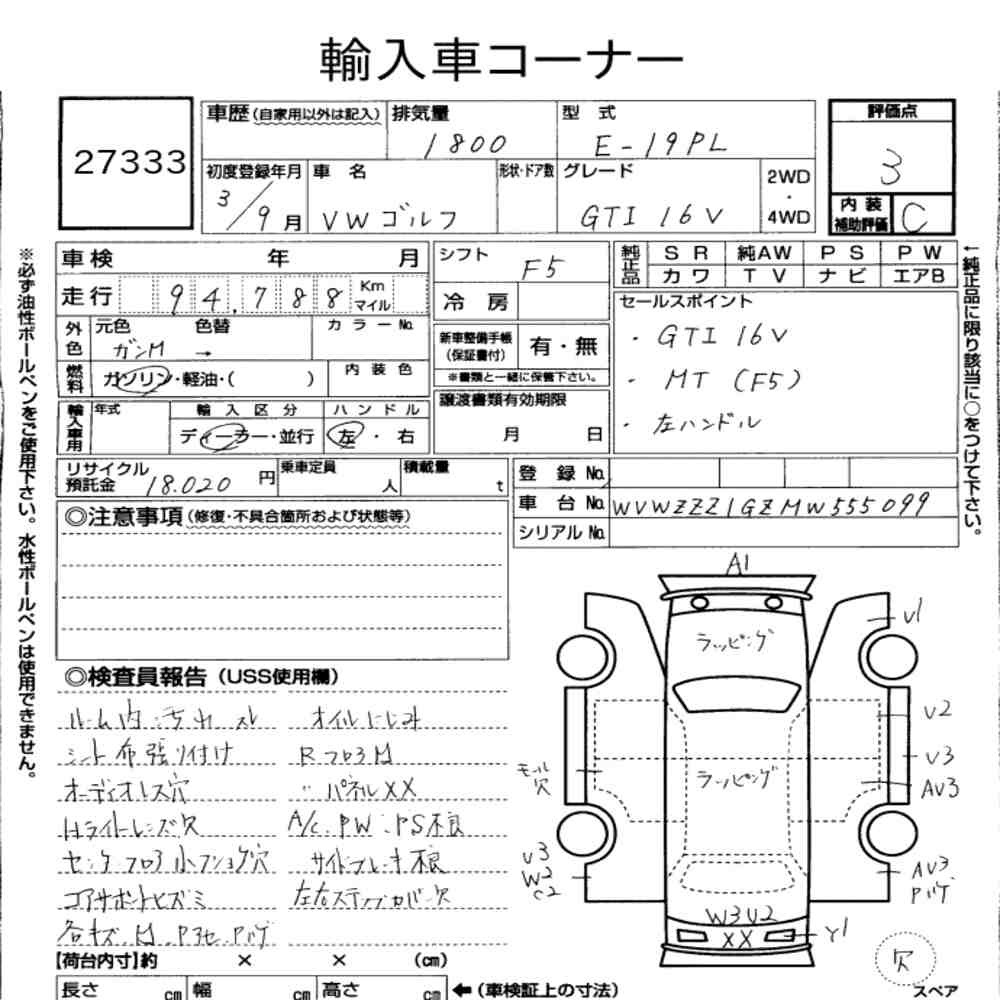 輸入車コーナー
27333
車歴(自家用以外は記入) 排気量 1800 型 式 E-19PL
評価点 3
初度登録年月 3/9月 車 名 VW ゴルフ 形状・ドア数 グレード GTI 16V 2WD・4WD
内装補助評価 C
車検 年 月
走行 94,788 Km マイル
外色 元色 ガンM 色替 → カラーNo.
燃料 ガソリン・軽油・( ) 内装色
輸入車用 年式 輸入区分 ディーラー・並行 ハンドル 左・右
シフト F5
冷 房
新車整備手帳(保証書付) 有・無
※書類と一緒に保管下さい。
譲渡書類有効期限 月 日
純正品 SR 純AW PS PW
カワ TV ナビ エアB
セールスポイント
・GTI 16V
・MT (F5)
・左ハンドル
リサイクル預託金 18.020 円 乗車定員 人 積載量 t
登 録 No.
車 台 No. WVWZZZ1GZMW555099
シリアル No.
※必ず油性ボールペンをご使用下さい。水性ボールペンは使用できません。
←純正品に限り該当に○をつけて下さい。
◎注意事項(修復・不具合箇所および状態等)
◎検査員報告(USS使用欄)
ルーム内・汚れ スレ オイルにじみ
シート布張り付け Rフロア
オーディオレス穴 〃パネルXX
Hライトレンズ欠 A/C.PW.PS不良
センターフロア 穴 サイドブレーキ不良
コアサポートヒズミ 左右ステップカバー欠
各キズ
A1
ラッピング
U1
U2
U3
AV3
モール穴
ラッピング
U3
W2
C2
AV3
W3U2
XX
Y1
欠
スペア
【荷台内寸】約 × × (cm)
長さ cm 幅 cm 高さ cm ←(車検証上の寸法)